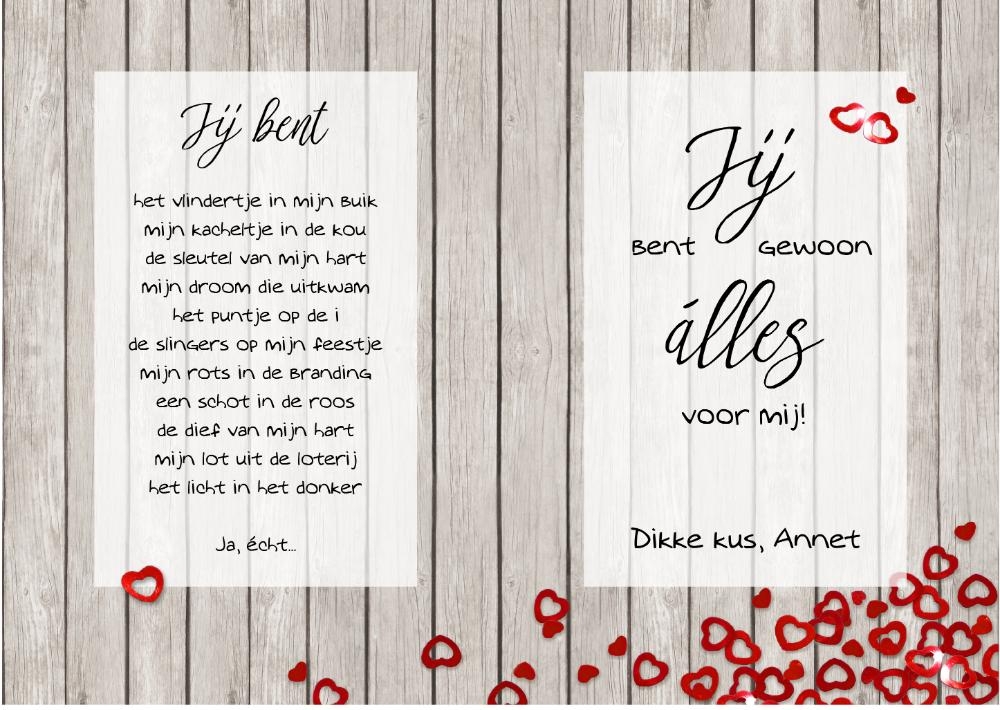 Jij bent
het vlindertje in mijn buik
mijn kacheltje in de kou
de sleutel van mijn hart
mijn droom die uitkwam
het puntje op de i
de slingers op mijn feestje
mijn rots in de branding
een schot in de roos
de dief van mijn hart
mijn lot uit de loterij
het licht in het donker
Ja, écht...
Jij
bent gewoon
álles
voor mij!
Dikke kus, Annet